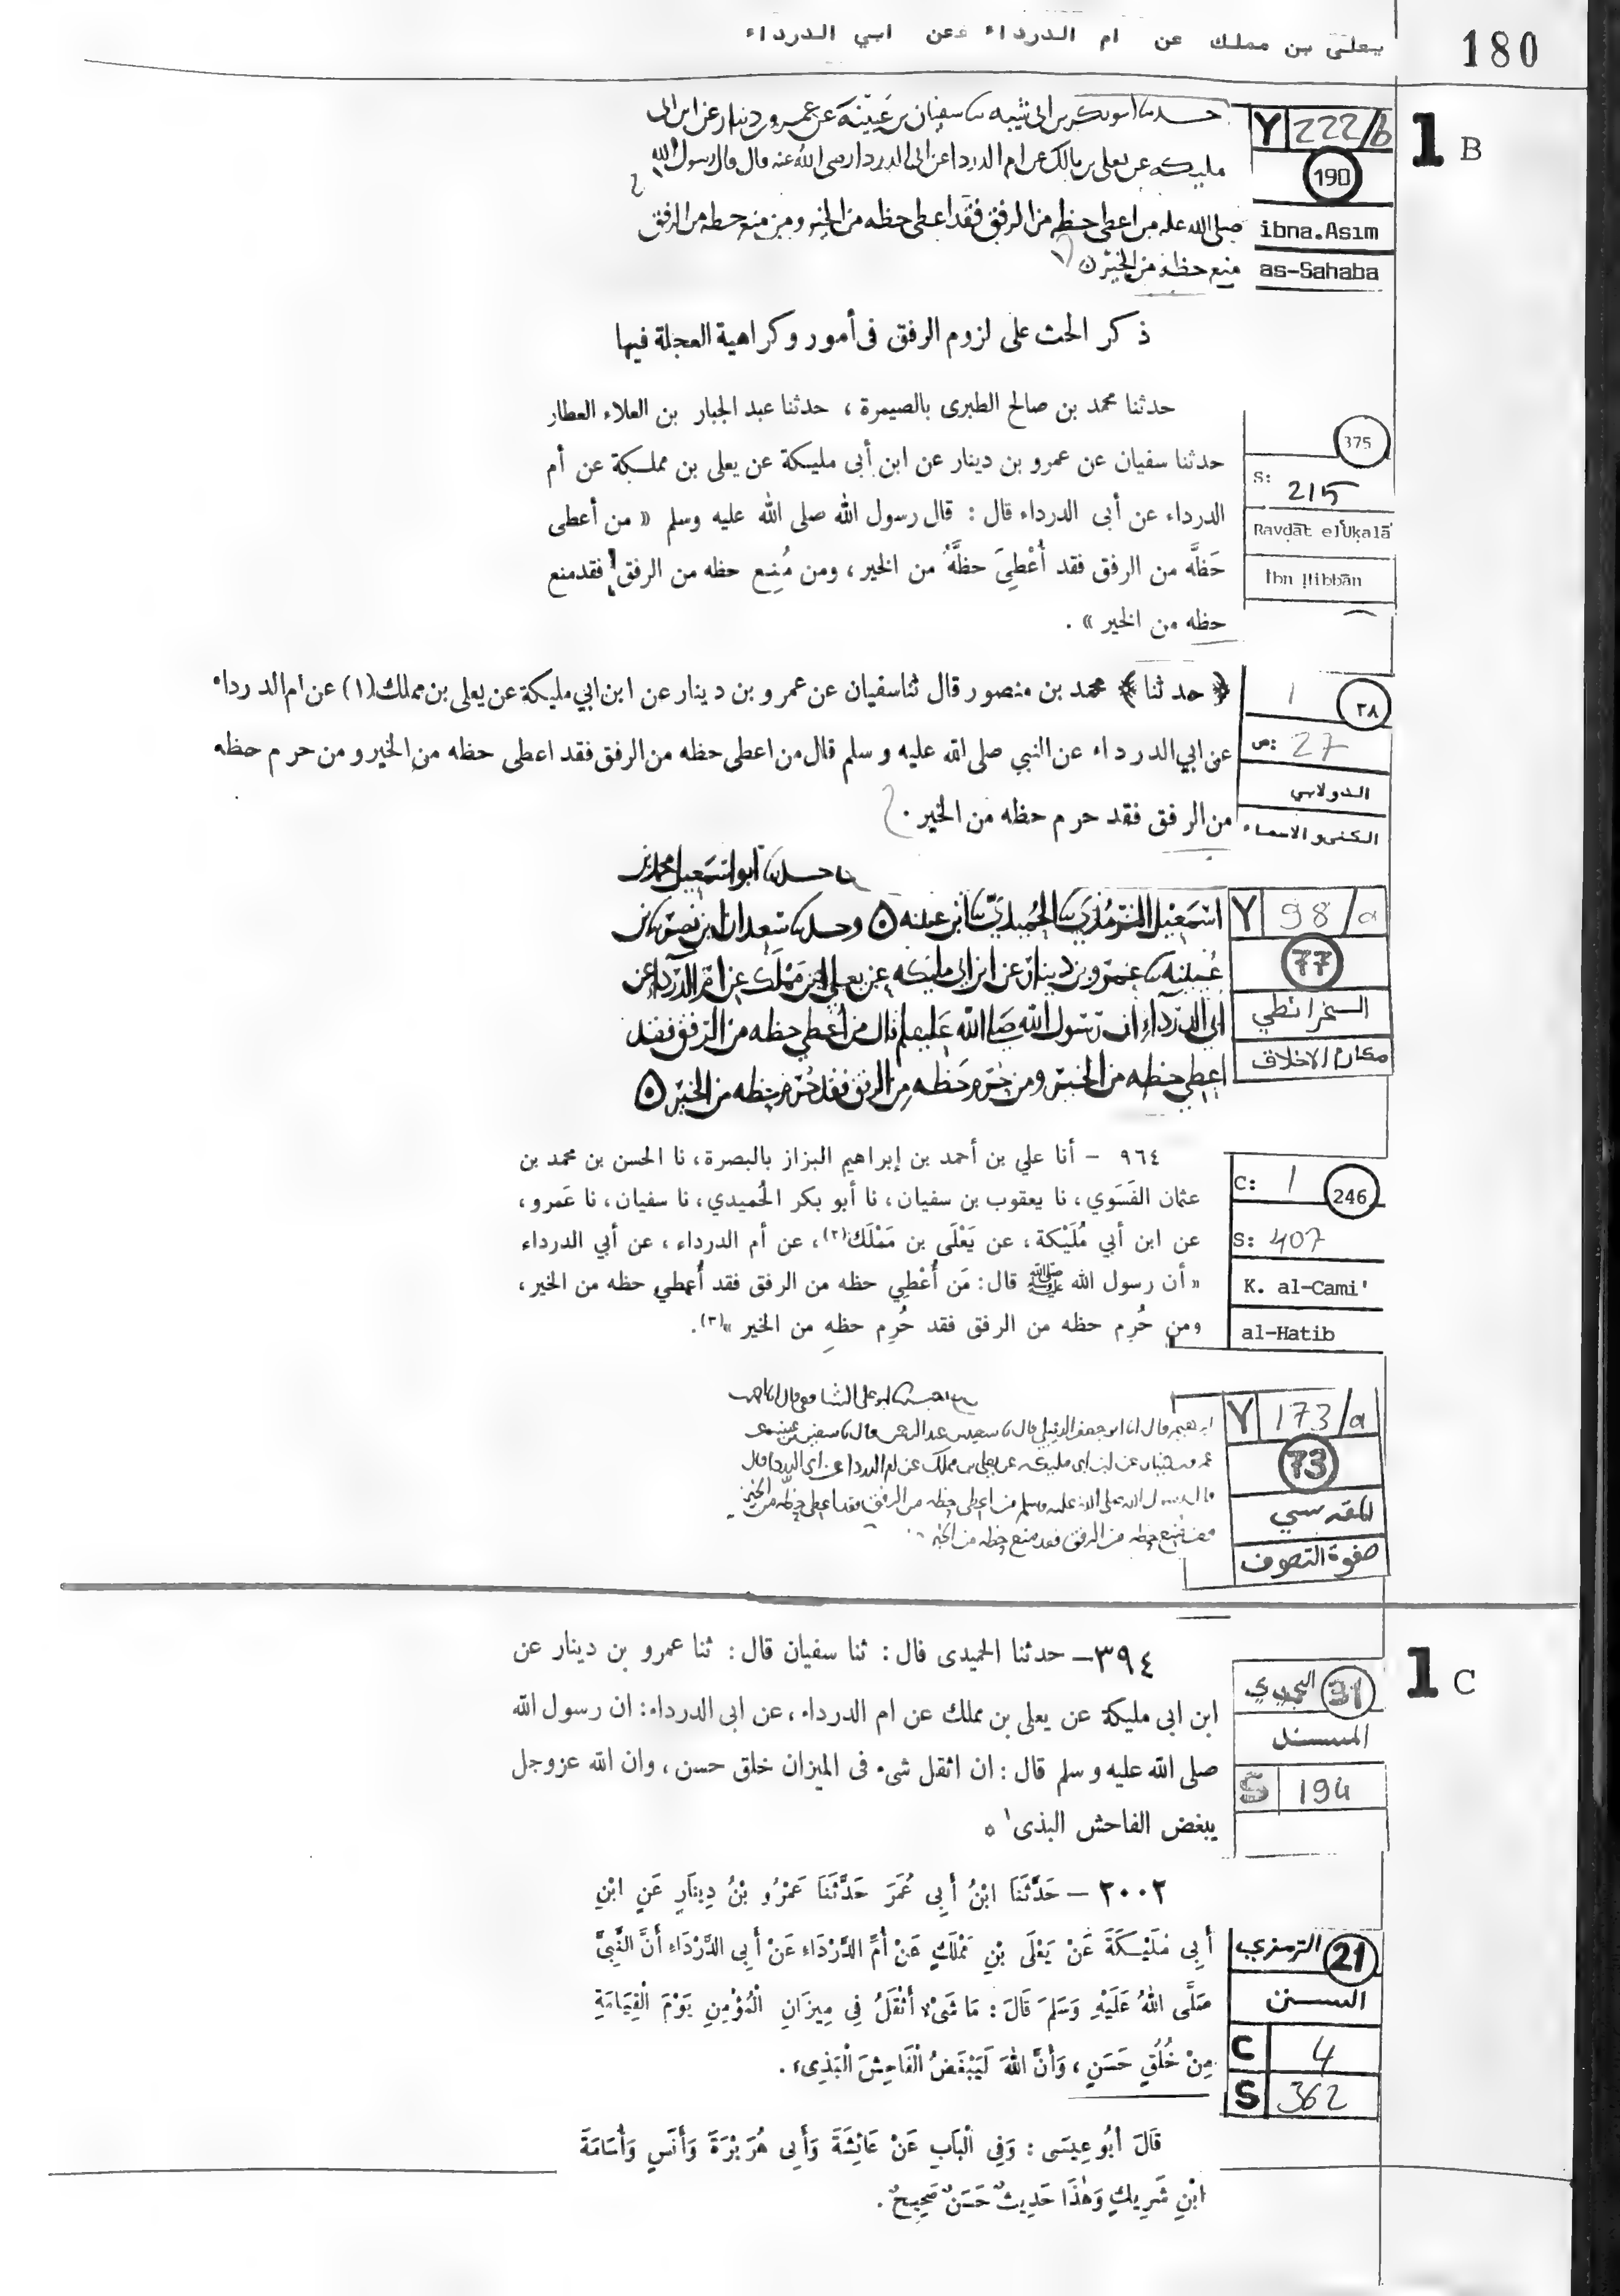 180
يعلى بن مملك عن ام الدرداء عن ابي الدرداء
1 B
Y 222/b
190
ibna.Asım
as-Sahaba
حدثنا ابو بكر بن ابى شيبه ثنا سفيان بن عيينة عن عمرو بن دينار عن ابن ابى
مليكه عن يعلى بن مالك عن ام الدرداء عن ابى الدرداء رضى الله عنه قال قال رسول الله
صلى الله عليه من اعطى حظه من الرفق فقد اعطى حظه من الخير ومن منع حظه من الرفق
منع حظه من الخير
ذكر الحث على لزوم الرفق فى أمور وكراهية العجلة فيها
375
S: 215
Ravḍāt el'Uḳalā'
İbn Ḥibbān
حدثنا محمد بن صالح الطبرى بالصيمرة ، حدثنا عبد الجبار بن العلاء العطار
حدثنا سفيان عن عمرو بن دينار عن ابن أبى مليكة عن يعلى بن مملكة عن أم
الدرداء عن أبى الدرداء قال : قال رسول الله صلى الله عليه وسلم « من أعطى
حَظَّه من الرفق فقد أُعْطِىَ حظَّهُ من الخير ، ومن مُنِع حظه من الرفق فقد منع
حظه من الخير » .
1 ٣٨
ص: 27
الدولابي
الكنى والاسماء
﴿ حد ثنا ﴾ محمد بن منصور قال ثنا سفيان عن عمرو بن دينار عن ابن ابي مليكة عن يعلى بن مملك (١) عن ام الدرداء
عن ابي الدرداء عن النبي صلى الله عليه وسلم قال من اعطى حظه من الرفق فقد اعطى حظه من الخير ومن حرم حظه
من الرفق فقد حرم حظه من الخير .
Y 98/a
77
الخرائطي
مكارم الاخلاق
حدثنا ابو اسمعيل محمد بن
اسمعيل الترمذي ثنا الحميدي ثنا ابن عيينه ۝ وحدثنا سعدان ابن نصر ثنا بن
عيينه ثنا عمرو بن دينار عن ابن ابي مليكه عن يعلى بن مملك عن ام الدرداء عن
ابي الدرداء ان رسول الله صلى الله عليه وسلم قال من اعطي حظه من الرفق فقد
اعطي حظه من الخير ومن حرم حظه من الرفق فقد حرم حظه من الخير ۝
C: 1 246
S: 407
K. al-Cami'
al-Hatib
٩٦٤ - أنا علي بن أحمد بن إبراهيم البزاز بالبصرة، نا الحسن بن محمد بن
عثمان الفَسَوي، نا يعقوب بن سفيان، نا أبو بكر الحُميدي، نا سفيان، نا عَمرو،
عن ابن أبي مُلَيْكة، عن يَعْلَى بن مَمْلَك(٢)، عن أم الدرداء، عن أبي الدرداء
« أن رسول الله ﷺ قال: مَن أُعْطِي حظه من الرفق فقد أُعطي حظه من الخير،
ومن حُرِم حظه من الرفق فقد حُرِم حظهِ من الخير »(٣).
Y 173/a
73
المقدسي
صفوة التصوف
ابو على الشافعى قال
ابرهيم قال انا ابو جعفر الديبلي قال ثنا سعيد بن عبد الرحمن قال ثنا سفين بن عيينه عن
عمرو بن دينار عن ابن ابى مليكه عن يعلى بن مملك عن ام الدرداء عن ابى الدرداء قال
قال رسول الله صلى الله عليه وسلم من اعطى حظه من الرفق فقد اعطى حظه من الخير
منع حظه من الرفق فقد منع حظه من الخير
1 C
31 الحميدي
المسند
S 194
٣٩٤ - حدثنا الحميدى قال : ثنا سفيان قال : ثنا عمرو بن دينار عن
ابن ابى مليكة عن يعلى بن مملك عن ام الدرداء، عن ابى الدرداء: ان رسول الله
صلى الله عليه وسلم قال : ان اثقل شىء فى الميزان خلق حسن ، وان الله عزوجل
يبغض الفاحش البذى١ ٥
21 الترمذي
السنن
C 4
S 362
٢٠٠٢ - حَدَّثَنَا ابْنُ أَبِى عُمَرَ حَدَّثَنَا عَمْرُو بْنُ دِينَارٍ عَنِ ابْنِ
أَبِى مُلَيْكَةَ عَنْ يَعْلَى بْنِ مَمْلَكٍ عَنْ أُمِّ الدَّرْدَاءِ عَنْ أَبِى الدَّرْدَاءِ أَنَّ النَّبِىَّ
صَلَّى اللهُ عَلَيْهِ وَسَلَّمَ قَالَ : مَا شَىْءٌ أَثْقَلُ فِى مِيزَانِ الْمُؤْمِنِ يَوْمَ الْقِيَامَةِ
مِنْ خُلُقٍ حَسَنٍ ، وَأَنَّ اللهَ لَيَبْغَضُ الْفَاحِشَ الْبَذِىءَ .
قَالَ أَبُو عِيسَى : وَفِى الْبَابِ عَنْ عَائِشَةَ وَأَبِى هُرَيْرَةَ وَأَنَسٍ وَأُسَامَةَ
ابْنِ شَرِيكٍ وَهٰذَا حَدِيثٌ حَسَنٌ صَحِيحٌ .